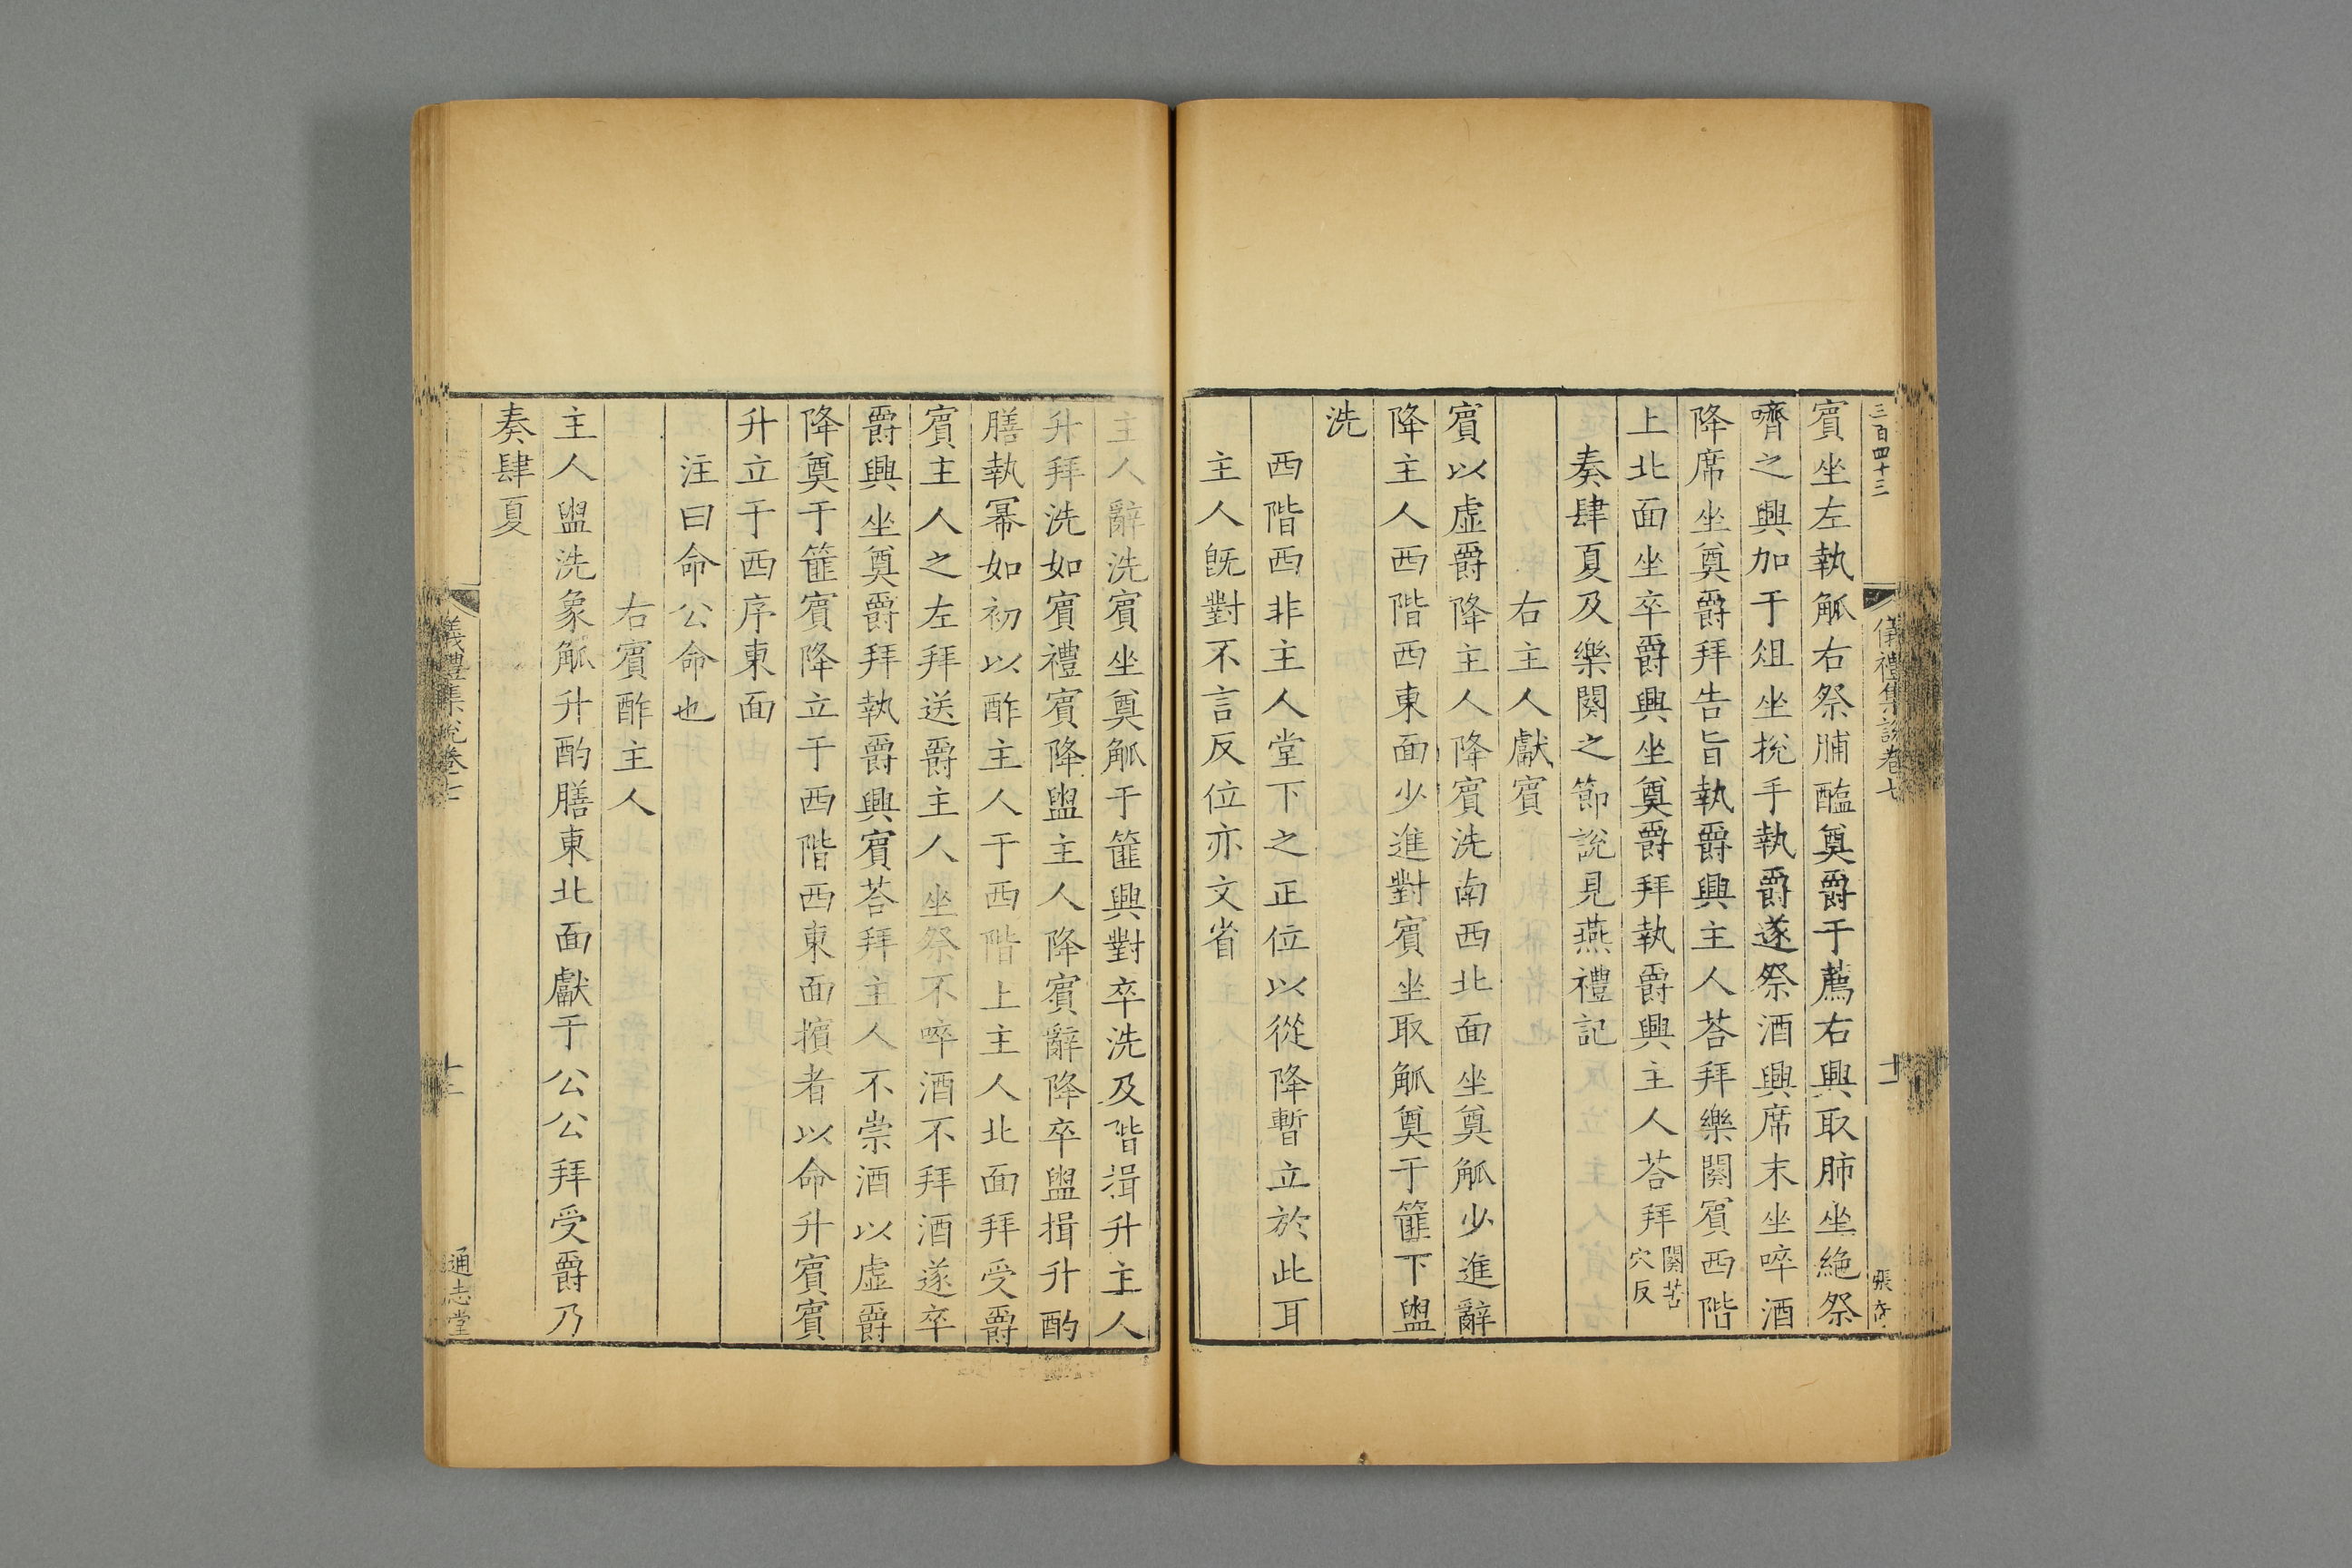 三百四十三
儀禮集說卷七
十二
賓坐左執觚右祭脯醢奠爵于薦右興取肺坐絶祭
嚌之興加于俎坐挩手執爵遂祭酒興席末坐啐酒
降席坐奠爵拜告旨執爵興主人荅拜樂闋賓西階
上北面坐卒爵興坐奠爵拜執爵興主人荅拜闋苦
穴反
奏肆夏及樂闋之節說見燕禮記
右主人獻賓
賓以虛爵降主人降賓洗南西北面坐奠觚少進辭
降主人西階西東面少進對賓坐取觚奠于篚下盥
洗
西階西非主人堂下之正位以從降暫立於此耳
主人旣對不言反位亦文省
主人辭洗賓坐奠觚于篚興對卒洗及階揖升主人
升拜洗如賓禮賓降盥主人降賓辭降卒盥揖升酌
膳執冪如初以酢主人于西階上主人北面拜受爵
賓主人之左拜送爵主人坐祭不啐酒不拜酒遂卒
爵興坐奠爵拜執爵興賓荅拜主人不崇酒以虛爵
降奠于篚賓降立于西階西東面擯者以命升賓賓
升立于西序東面
注曰命公命也
右賓酢主人
主人盥洗象觚升酌膳東北面獻于公公拜受爵乃
奏肆夏
儀禮集說卷七
十二
通志堂